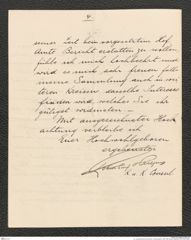 8
seiner Zeit dem vorgesetzten Hof-
Amte Bericht erstatten zu wollen,
fühle ich mich hochbeehrt und
wird es mich sehr freuen falls
meine Sammlung auch in wei-
teren Kreisen dasselbe Interesse
finden wird, welches Sie ihr
gütigst widmeten. -
Mit ausgezeichneter Hoch-
achtung verbleibe ich
Euer Hochwohlgeboren
ergebenster
k. u. k. Consul